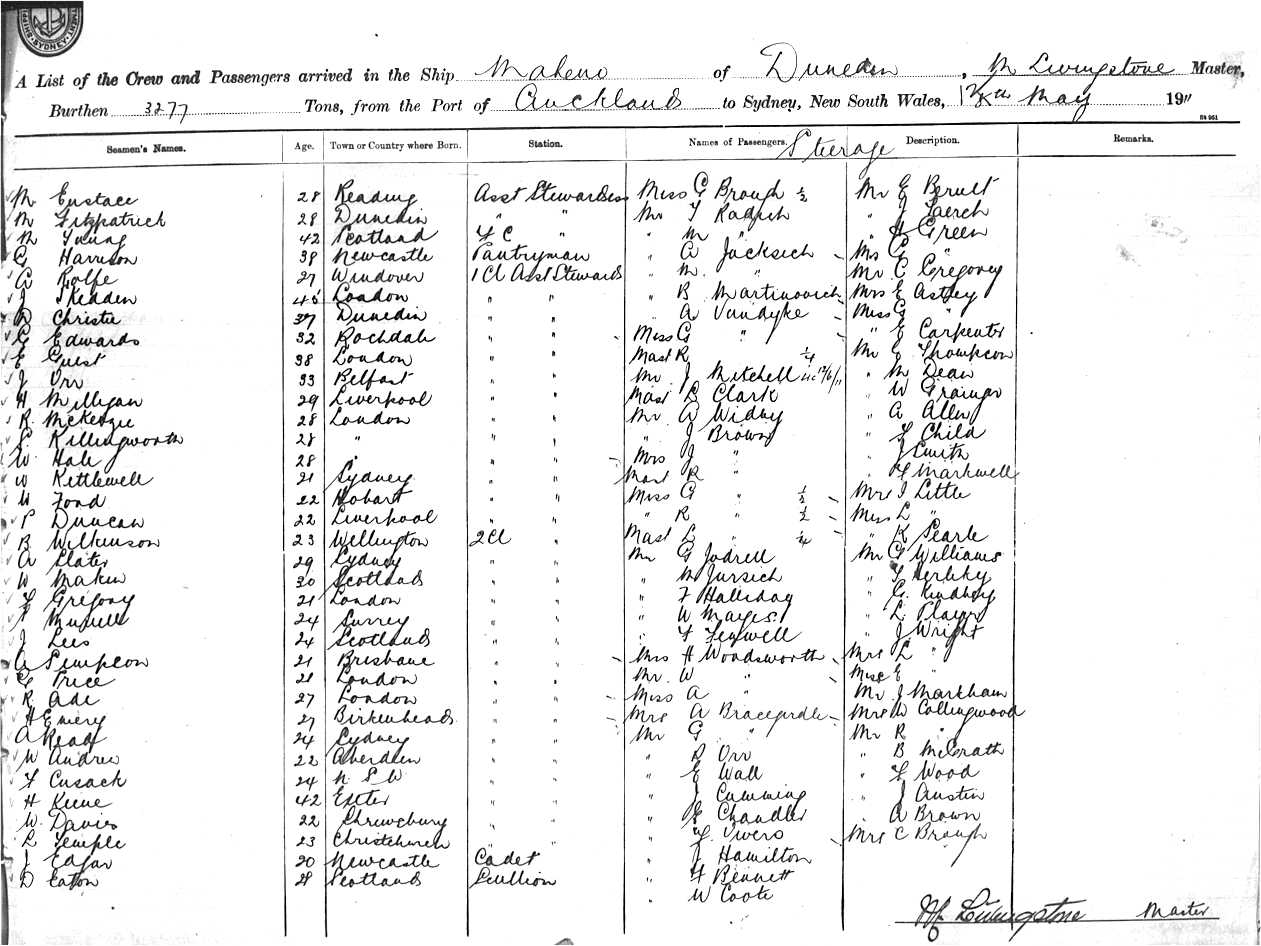 SYDNEY
A List of the Crew and Passengers arrived in the Ship Maheno of Dunedin, M Livingstone Master,
Burthen 3277 Tons, from the Port of Auckland to Sydney, New South Wales, May 1911
Seamen's Names. Age. Town or Country where Born. Station. Names of Passengers. Steerage Description. Remarks.
M Eustace 28 Reading Asst Stewardess Miss G Brough ½ Mr E
M Fitzpatrick 28 Dunedin " " Mr T Radich " J
M Young 42 Scotland " " M " " H Green
G Harrison 38 Newcastle Pantryman " A Jacksich - Mrs G "
A Rolfe 27 Windover 1 Cl Asst Stewards " M. " Mr C Gregory
J Skedden London " " " B Martinovich Mrs E Astley
D Christie 37 Dunedin " " " A Vandyke - Miss G "
G Edwards 32 Rochdale " " - Miss G " - " E Carpenter
E Guest 38 London " " Mast R ¼ Mr J Thompson
J Orr 33 Belfast " " Mr J Mitchell " M Dean
H Milligan 29 Liverpool " " Mast L Clark " W Grainger
R McKenzie 28 London " " Mr A Widby " A Allen
S Killingworth 28 " " " " J Brown " F Child
W Hale 28 " " " - Mrs J " " J Smith
W Kettlewell 21 Sydney " " Mast R " " F Markwell
W Foad 22 Hobart " " Miss G " ½ - Mrs J Little
P Duncan 22 Liverpool " " " R " ½ - Miss L "
B Wilkinson 23 Wellington 2 Cl " Mast L " ¼ " K Searle
A Slater 29 Sydney " " Mr G Jodrell Mr G Williams
W Makin 30 Scotland " " " M Jursich " T Herlihy
F Gregory 21 London " " " F Halliday " G
Murell 24 Surrey " " " W Mayes " L Player
J Lees 24 Scotland " " " F Fenwell " J Wright
A Simpson 21 Brisbane " " - Mrs H Woodsworth - Mrs L "
G Price 21 London " " Mr. W " Miss E "
R Ade 27 London " " - Miss A " - Mr J Markham
H Emery 27 Birkenhead " " - Mrs A Bracegirdle - Mrs W Collingwood
A Read 24 Sydney " " Mr G " Mr R "
W Andrew 22 Aberdeen " " " D Orr " B McGrath
F Cusack 24 N S W " " " E Wall " F Wood
H Keene 42 Exter " " " J Cumming " J Austin
W Davies 22 Shrewsbury " " " E Chandler " A Brown
L Temple 23 Christchurch " " " F Vivers - Mrs C Brough
J Edgar 20 Newcastle Cadet " J Hamilton
D Eaton 28 Scotland Scullion " F Bennett
" W Coote
Livingstone Master